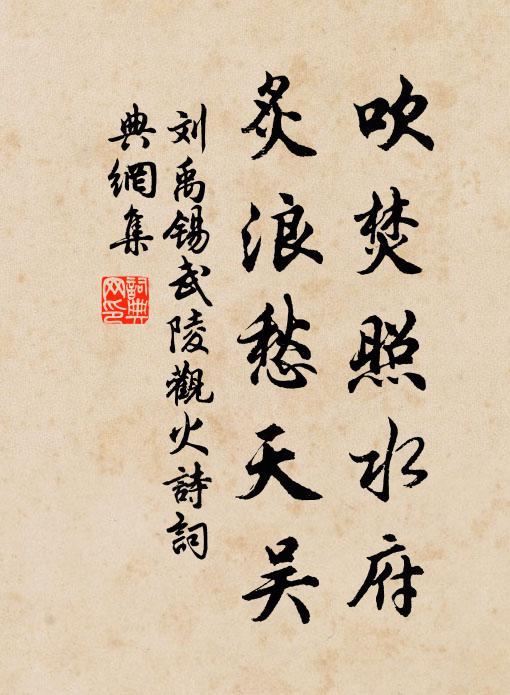 吹焚照水府
炙浪愁天吴
刘禹锡武陵觀火詩詞
典網集
詞典网印